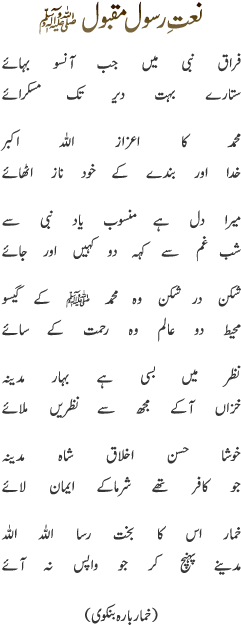 نعتِ رسولِ مقبول ﷺ
فراق نبی میں جب آنسو بہائے
ستارے بہت دیر تک مسکرائے
محمد کا اعزاز اللہ اکبر
خدا اور بندے کے خود ناز اٹھائے
میرا دل ہے منسوب یاد نبی سے
شب غم سے کہہ دو کہیں اور جائے
شکن در شکن وہ محمد ﷺ کے گیسو
محیط دو عالم وہ رحمت کے سائے
نظر میں بسی ہے بہار مدینہ
خزاں آکے مجھ سے نظریں ملائے
خوشا حسن اخلاق شاہ مدینہ
جو کافر تھے شرماکے ایمان لائے
خمار اس کا بخت رسا اللہ اللہ
مدینے پہنچ کر جو واپس نہ آئے
(خمار بارہ بنکوی)